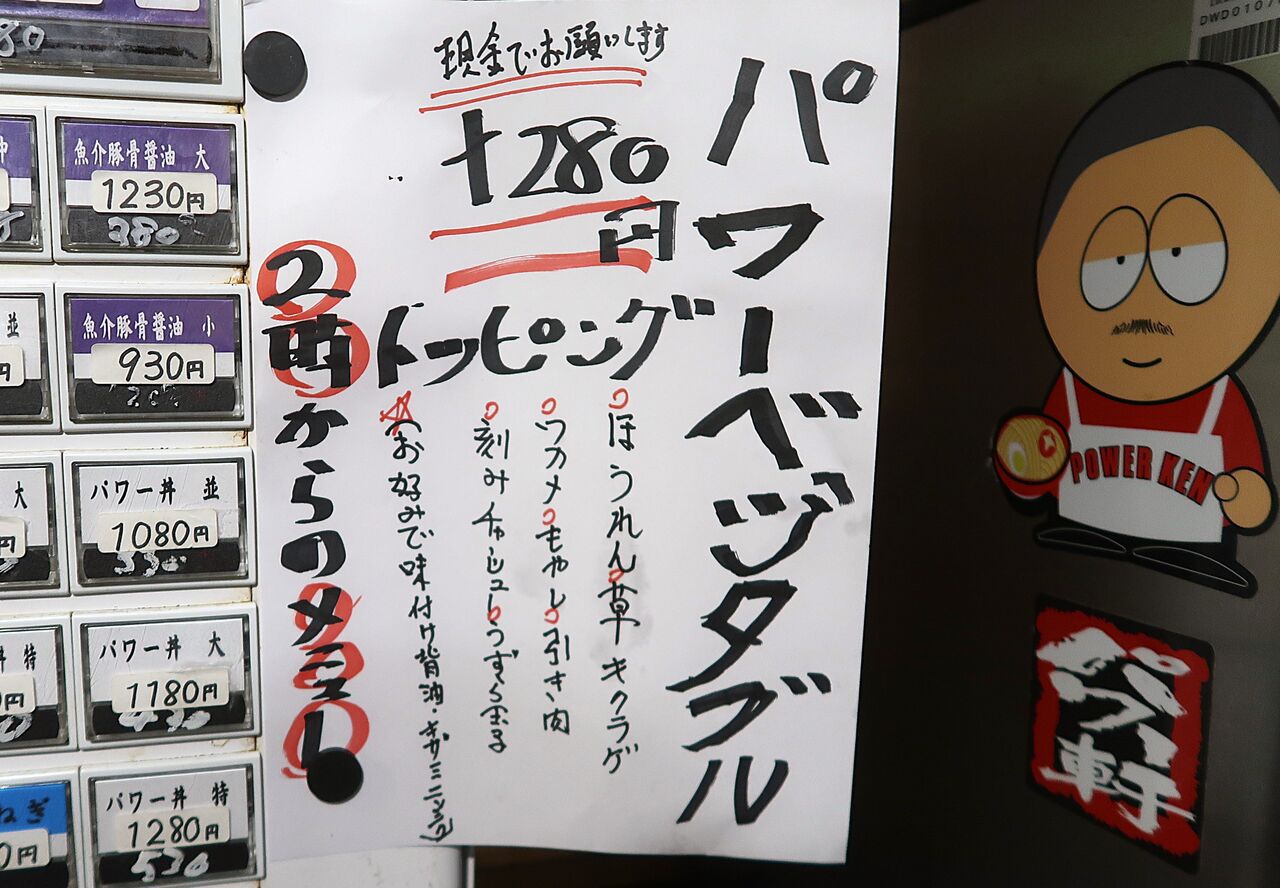 現金でお願いします
+280円
パワーベジタブル
トッピング
ほうれん草 キクラゲ
ワカメ もやし 引き肉
刻みチャーシュー うずら玉子
お好みで味付け背油・きざみニンニク
2時からのメニュー
魚介豚骨醤油 大
1230円
魚介豚骨醤油 小
930円
並
パワー丼 並
1080円
大
パワー丼 大
1180円
特
パワー丼 特
1280円
530
ねぎ
POWER KEN
パワー軒